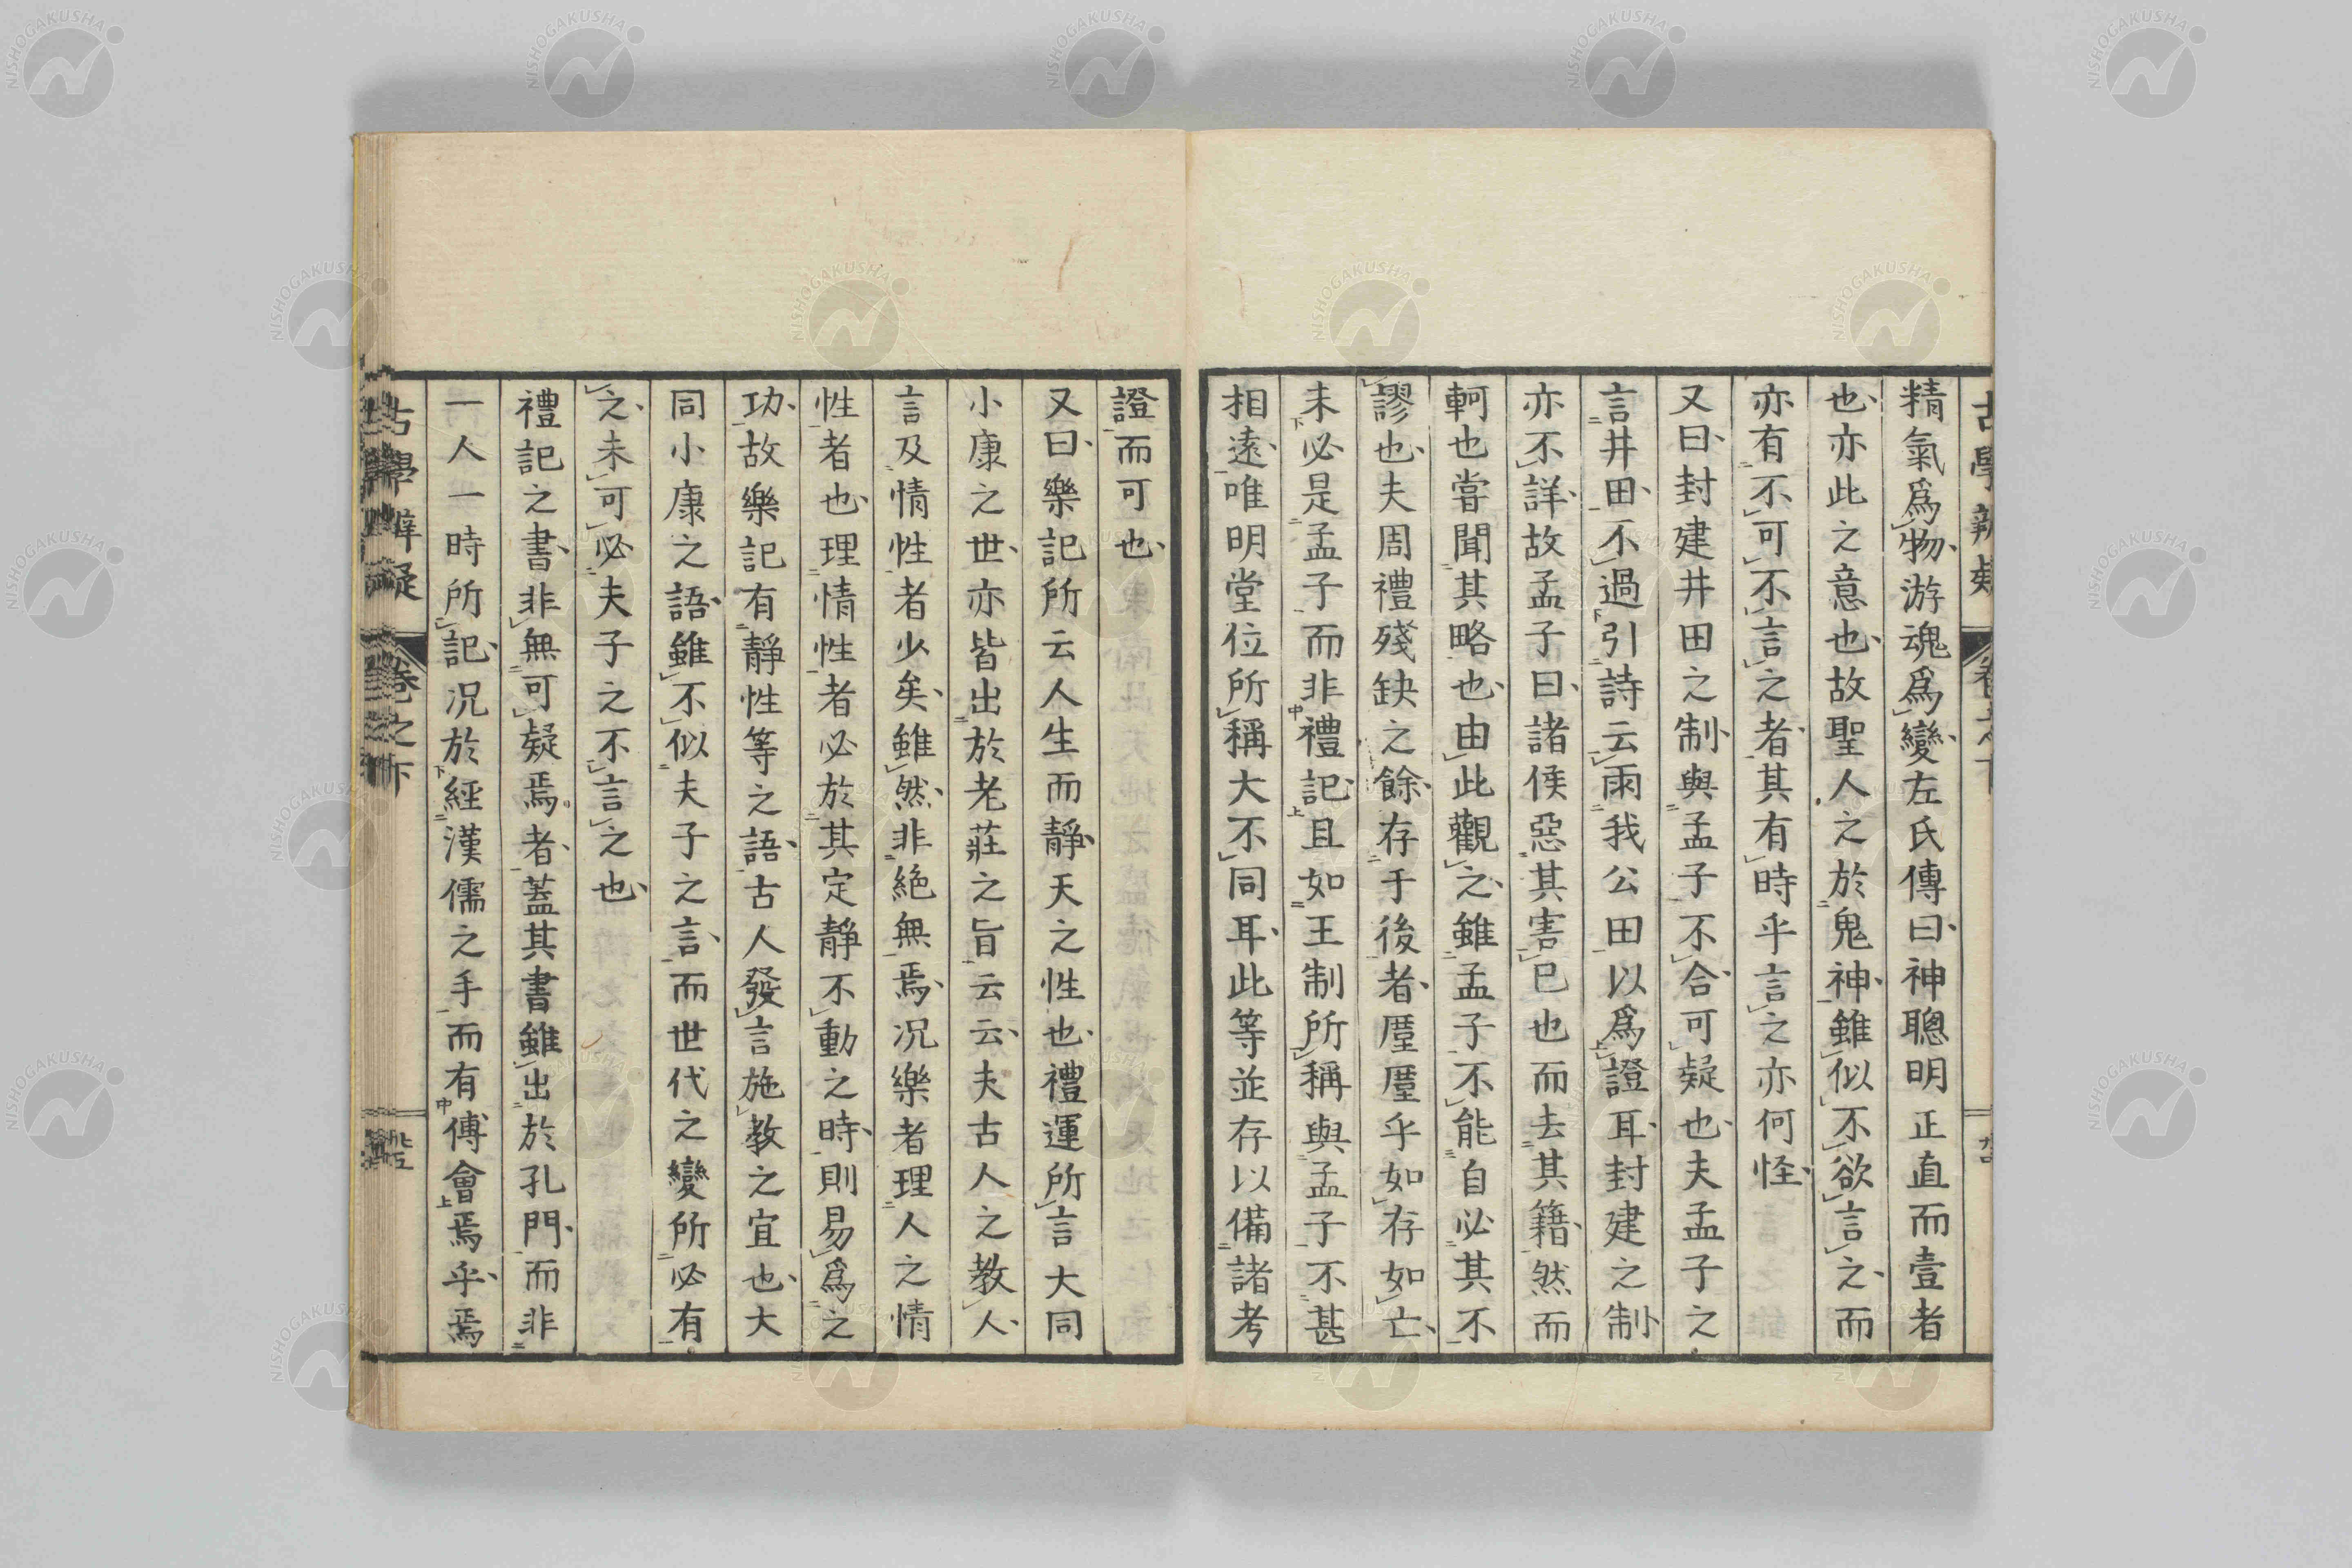 精氣爲物游魂爲變左氏傳曰神聰明正直而壹者
也亦此之意也故聖人之於鬼神雖似不欲言之而
亦有不可不言之者其有時乎言之亦何怪
又曰封建井田之制與孟子不合可疑也夫孟子之
言井田不過引詩云雨我公田以爲證耳封建之制
亦不詳故孟子曰諸侯惡其害已也而去其籍然而
軻也嘗聞其略也由此觀之雖孟子不能自必其不
謬也夫周禮殘缺之餘存于後者厪厪乎如存如亡
未必是孟子而非禮記且如王制所稱與孟子不甚
相遠唯明堂位所稱大不同耳此等並存以備諸考
證而可也
又曰樂記所云人生而靜天之性也禮運所言大同
小康之世亦皆出於老莊之旨云云夫古人之教人
言及情性者少矣雖然非絕無焉况樂者理人之情
性者也理情性者必於其定靜不動之時則易爲之
功故樂記有靜性等之語古人發言施教之宜也大
同小康之語雖不似夫子之言而世代之變所必有
之未可必夫子之不言之也
禮記之書非無可疑焉者蓋其書雖出於孔門而非
一人一時所記况於經漢儒之手而有傅會焉乎焉
古學辨疑
卷之下
NISHOGAKUSHA